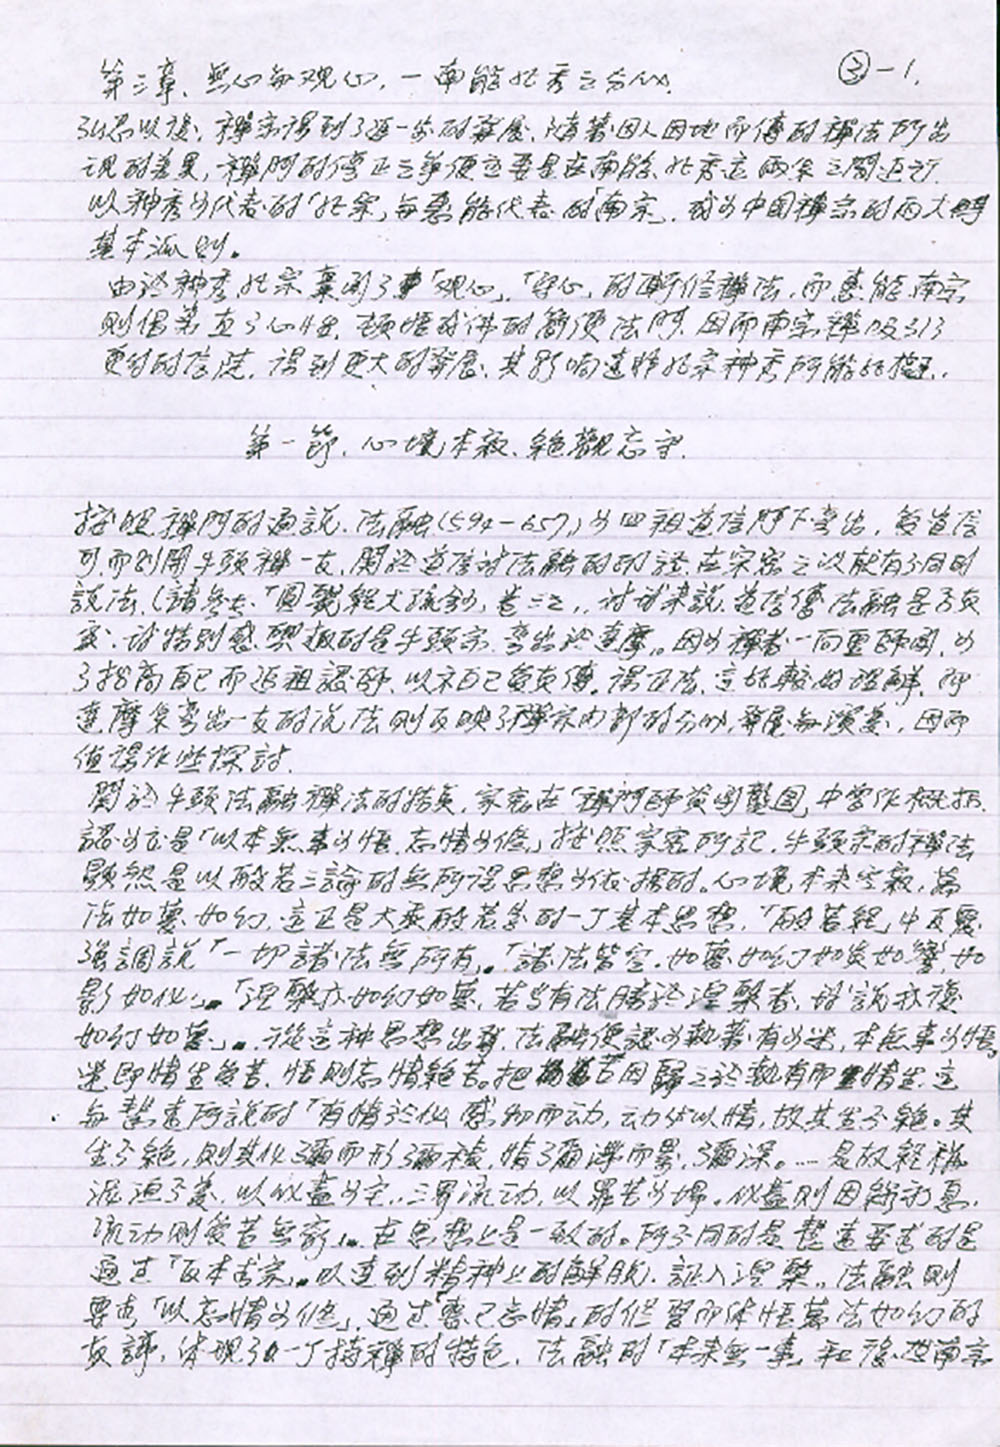 ③-1.
第三章、無心與观心，一南能北秀之分化
弘忍以後，禪宗得到了進一步的發展，隨著因人因地而傳的禪法所出
現的差異，禪門的傳正之爭便主要是在南能、北秀這兩系之間進行
以神秀为代表的「北宗」與惠能代表的「南宗」，成为中國禪宗的两大
基本派别。
由於神秀北宗稟承了「观心」、「守心」的漸修禪法，而惠能南宗
则倡導直了心性，頓悟成佛的簡便法門，因而南宗禪吸引了
更多的信徒，得到更大的發展，其影响遠非北宗神秀所能比擬。
第一節、心境本寂、絕觀忘守
按照禪門的通說，法融(594-657)为四祖道信門下旁出，後道信
可而别開牛頭禪一支，關於道信對法融的印證，在宗密之後就有不同的
說法，(請參考「圓覺經大疏鈔」卷三之，對我来說，道信傳法融是否真
實，讨特别感興趣的是牛頭宗旁出於達摩。因为禪者一向重師承，为
了抬高自己而追祖認師，以示自己貧真傳，得正法，這比較好理解，而
達摩系旁出一支的说法则反映了禪宗内部的分化，發展與演变，因而
值得作些探討。
關於牛頭法融禪法的特点，宗密在「禪門師資承襲图」中曾作概括，
認为它是「以本無事为悟，忘情为修」按照宗密所記，牛頭宗的禪法
顯然是以般若三論的無所得思想为依據的。心境本来空寂，萬
法如夢如幻，這正是大乘般若学的一个基本思想，「般若經」中反覆
强調說「一切諸法無所有」。「諸法皆空，如夢如幻如炎如響，如
影如化」。「涅槃亦如幻如夢，若当有法勝於涅槃者，我說亦復
如幻如夢」。從這种思想出發，法融便認为執著有为迷，本無事为悟，
迷即情生負苦，悟則忘情絕苦。把苦因歸之於執有而情生，這
與慧遠所說的「有情於化，感物而动，动必以情，故其生不絕。其
生不絕，则其化弥廣而形弥積，情弥滯而累弥深。…是故經稱
泥洹不变，以化盡为宅，三界流动，以罪苦为場。化盡则因緣永息，
流动则受苦無窮」。在思想上是一致的。所不同的是慧遠要求的是
通过「反本求宗」，以達到精神上的解脫，証入涅槃，法融则
要求「以忘情为修」，通过喪己忘情」的修習而体悟萬法如幻的
真諦，体現了一个持禪的特色，法融的「本来無一事」和後世南宗